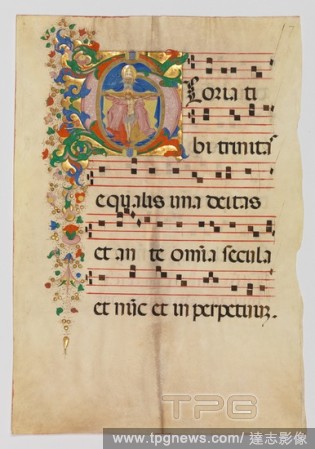 17
Gloria ti
bi trinitas
equalis una deitas
et an te omnia secula
et nunc et in perpetuum.
TPG
www.tpgnews.com/ 達志影像